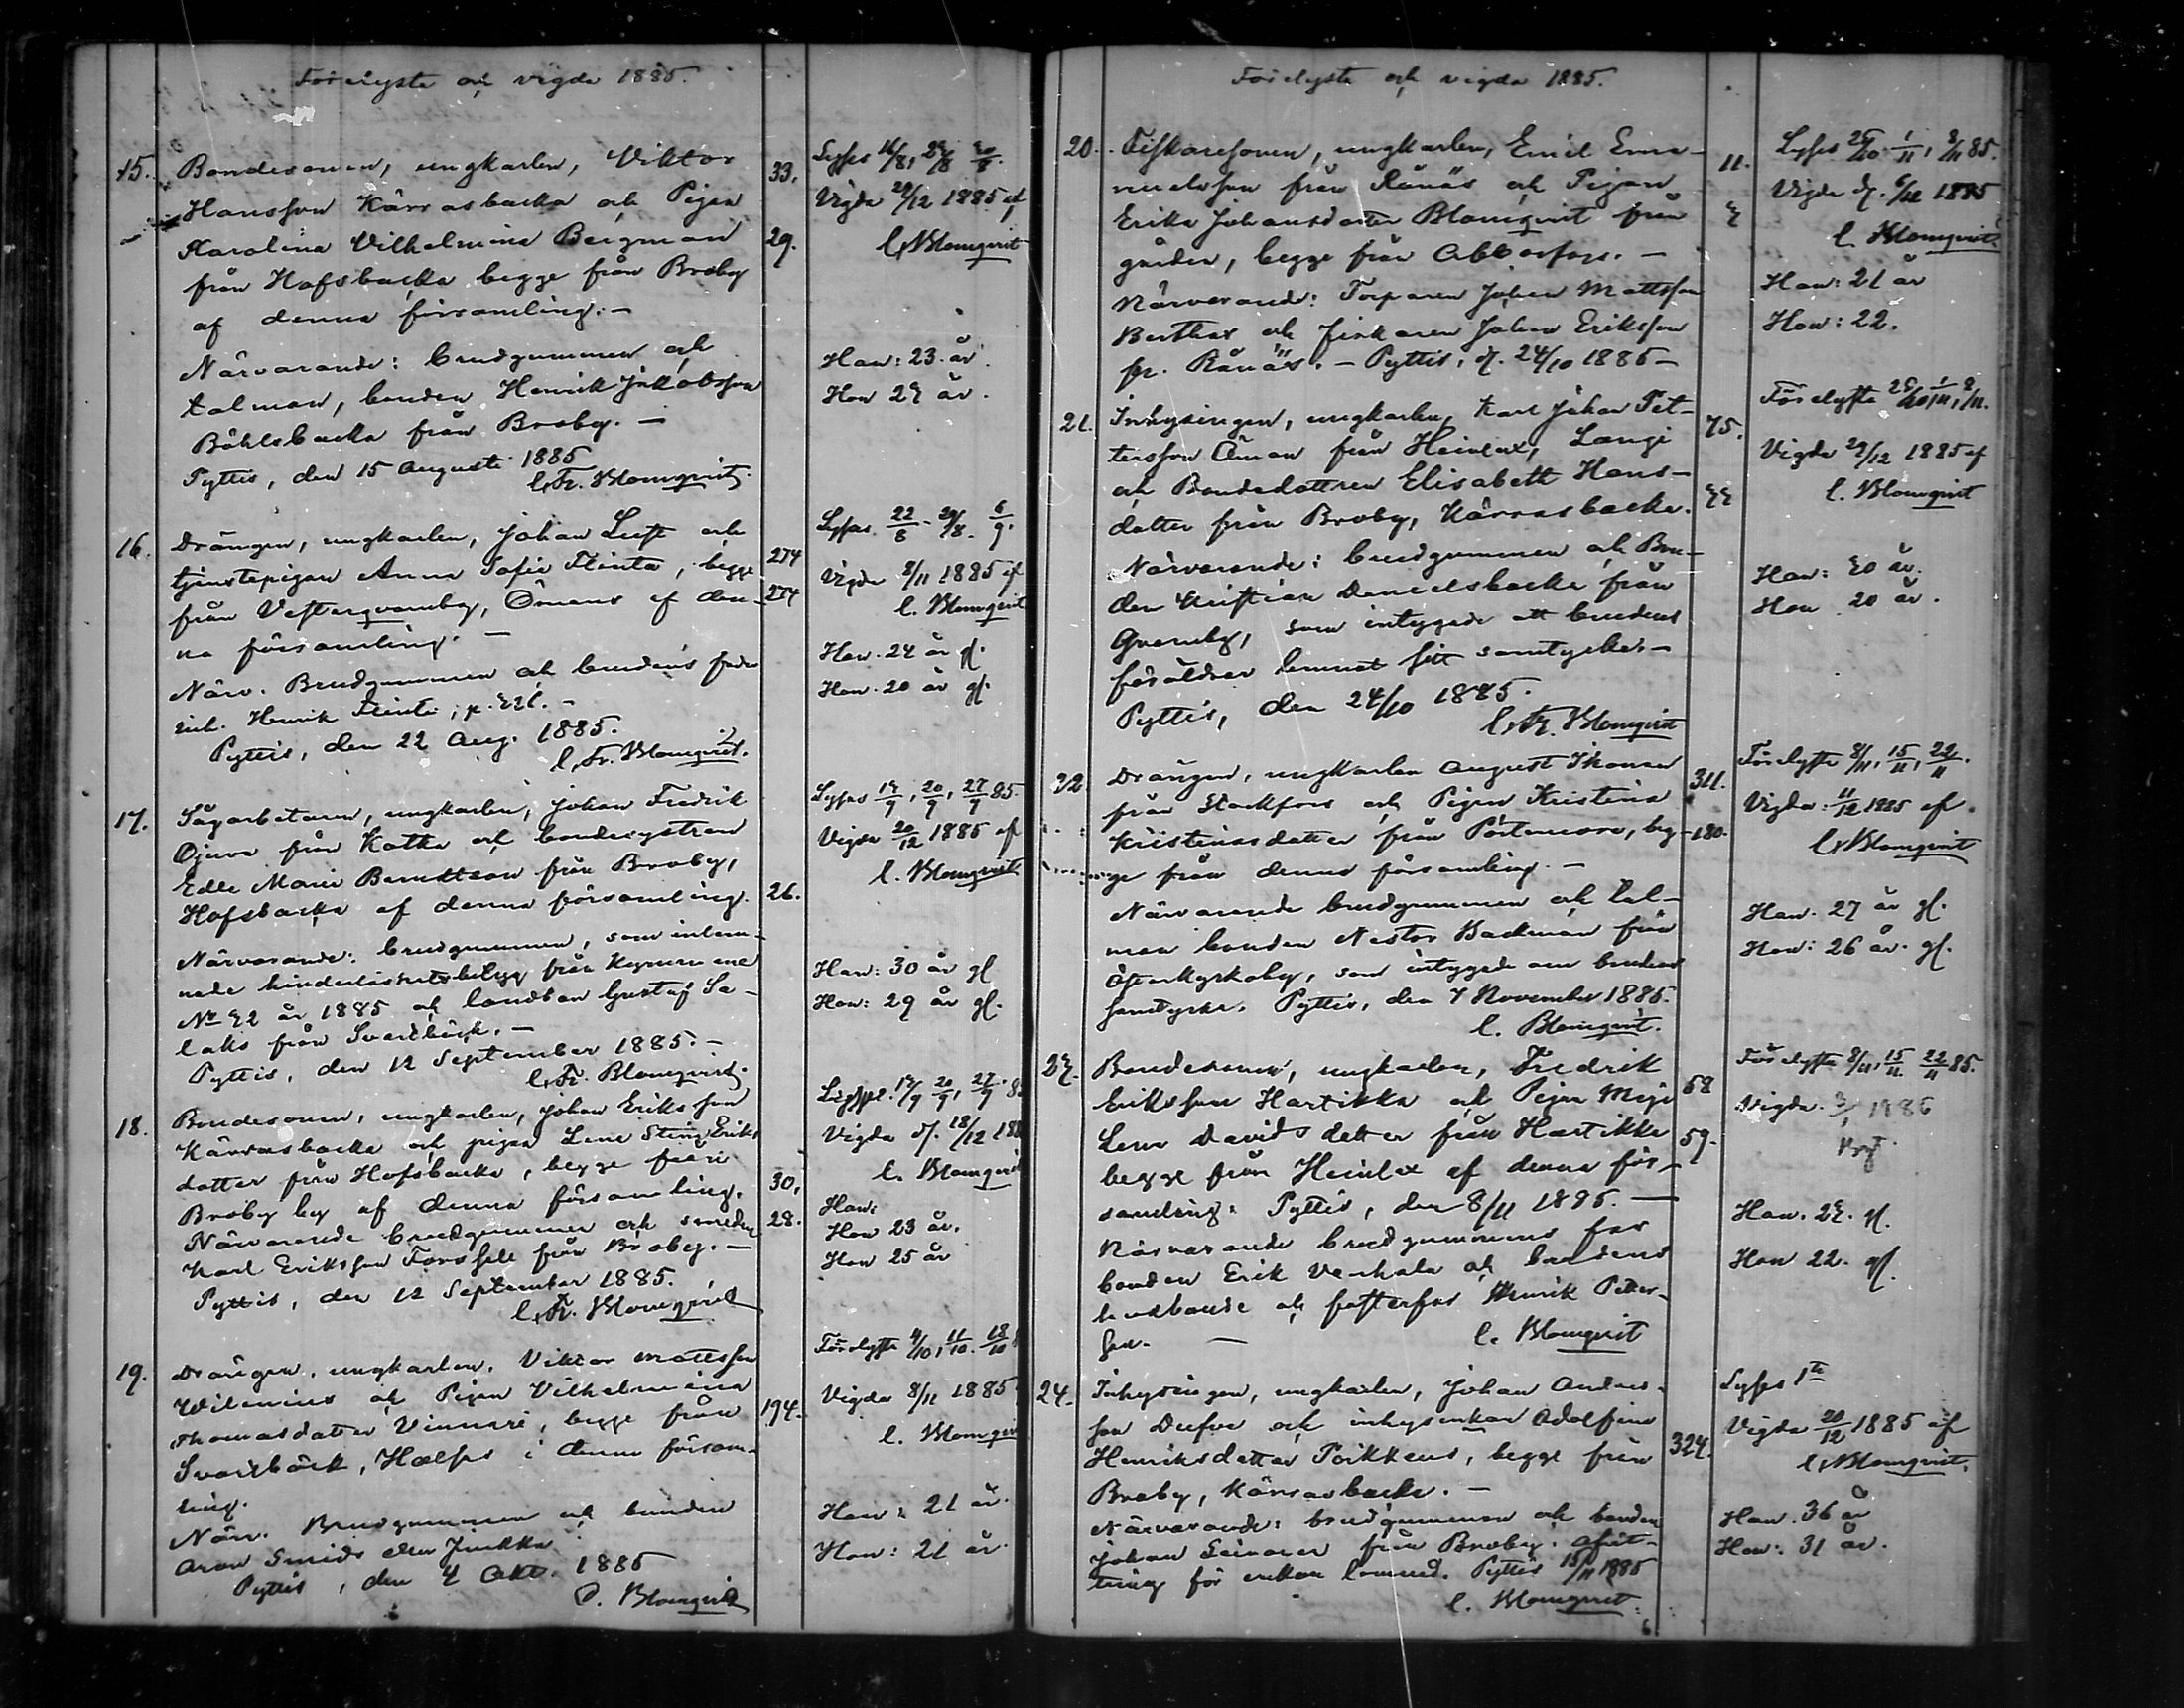 Förelyste och vigde 1885.
15. Bondesonen, ungkarlen, Viktor 33.
Hansson Kärrasbacka och Pigan
Karolina Vilhelmina Bergman 29.
från Hofsbacka begge från Broby
af denna församling. —
Närvarande: brudgummen och
talman, bonden Henrik Jakobsson
Böhlsbacka från Broby. —
Pyttis, den 15 Augusti 1885
C. Fr. Blomqvist.
Lyses 16/8, 23/8 30/8.
Vigda 29/12 1885 af
C. Blomqvist
Han: 23 år.
Hon 23 år.
16. Drängen, ungkarlen, Johan och 274
tjenstepigan Anna Sofia Flinta, begge
från Vestergvarnby, Ömans af den- 274
na församling. —
Närv. Brudgummen och brudens fader
inh. Henrik Flinta, p. 321. —
Pyttis, den 22 Aug. 1885.
C. Fr. Blomqvist.
Lyses 22/8 - 29/8. 6/9.
Vigda 8/11 1885 af
C. Blomqvist
Han. 24 år gl.
Hon. 20 år gl.
17. Sågarbetaren, ungkarlen, Johan Fredrik
Ojuva från Kotka och bondesystren
Edla Maria Berndtson från Broby,
Hofsbacka af denna församling. 26.
Närvarande: brudgummen, som inlem-
nade hinderlöshetsbetyg från Kymmene
No 32 år 1885 och landbon Gustaf Sa-
laks från Svartbäck. —
Pyttis, den 12 September 1885. —
C. Fr. Blomqvist.
Lyses 13/9, 20/9, 27/9 85.
Vigda 20/12 1885 af
C. Blomqvist
Han: 30 år gl
Hon: 29 år gl.
18. Bondesonen, ungkarlen, Johan Eriksson
Kärrasbacka och pigan Lena Stina Eriks
datter från Hofsbacka, begge från 30.
Broby by af denna församling.
Närvarande brudgummen och smeden 28.
Karl Eriksson Forssell från Broby. —
Pyttis, den 12 September 1885.
C. Fr. Blomqvist
13/9 20/9, 27/9
Vigda d. 18/12
C. Blomqvist
Han:
Han 23 år.
Hon 25 år
19. Drängen, ungkarlen, Viktor Mattsson
Wilenius och Pigan Vilhelmina
Thomasdatter Vinnari, begge från 194.
Svartbäck, i denna försam-
ling.
Närv. Brudgummen och bonden
Aron Smids
Pyttis, den 4 Okt. 1885
C. Blomqvist
Förelyste 4/10, 11/10. 18/10
Vigda 8/11 1885
C. Blomqvist
Han: 21 år.
Hon: 21 år.
Förelyste och vigda 1885.
20. Fiskaresonen, ungkarlen, Emil Ema- 11.
nuelsson från Rånäs och Pigan
Erika Johansdatter Blomqvist från 3
gården, begge från Abborfors. —
Närvarande: Torparen Johan Mattsson
Berthas och fiskaren Johan Eriksson
fr. Rånäs. — Pyttis, d. 24/10 1885 —
Lyses 25/10 1/11, 8/11 85.
Vigda d. 6/12 1885
C. Blomqvist
Han: 21 år
Hon: 22.
21. Inhysingen, ungkarlen, Karl Johan Pet- 75.
tersson Öman från Heinlax, Langi
och Bondedottren Elisabeth Hans- 33
datter från Broby, Kärrasbacka.
Närvarande: brudgummen och Bon-
den Kristian Danielsbacka från
Gvarnby, som intygade att brudens
föräldrar lemnat sitt samtycke. —
Pyttis, den 24/10 1885.
C. Fr. Blomqvist
Förelyste 25/10, 1/11, 8/11.
Vigda 29/12 1885 af
C. Blomqvist
Han: 30 år.
Hon 20 år.
22 Drängen, ungkarlen August Ikonen 311.
från Stockfors och Pigan Kristina
Kristinasdatter från Pörtenoro, beg- 180.
ge från denna församling. —
Närvarande brudgummen och tal-
man bonden Nestor Backman från
, som intygade om brudens
samtycke. Pyttis, den 7 November 1885.
C. Blomqvist.
Förelyste 8/11, 15/11, 22/11.
Vigda 11/12 1885 af.
C. Blomqvist
Han. 27 år gl.
Hon: 26 år. gl.
23. Bondesonen, ungkarlen, Fredrik
Eriksson Hartikka och Pigan Maja 58
Lena Davidsdatter från Hartikka 59.
begge från Heinlax af denna för-
samling. Pyttis, den 8/11 1885. —
Närvarande brudgummens far
bonden Erik Verhala och brudens
husbonde och fosterfar Henrik Peters-
son. — C. Blomqvist
Förelyste 8/11, 15/11 22/11 85.
Vigda 3/1 1886
Han. 23. gl.
Hon 22. gl.
24. Inhysingen, ungkarlen, Johan Anders-
son Dufva och inhysenkan Adolfina
Henriksdatter Poikkeus, begge från 324.
Broby, Kärrasbacka. —
Närvarande: brudgummen och bonden
Johan från Broby. Afvit-
tring för enkan lemnad. Pyttis 15/11 1885
C. Blomqvist.
Lyses 1te
Vigda 20/12 1885 af
C. Blomqvist.
Han. 36 år
Hon: 31 år.